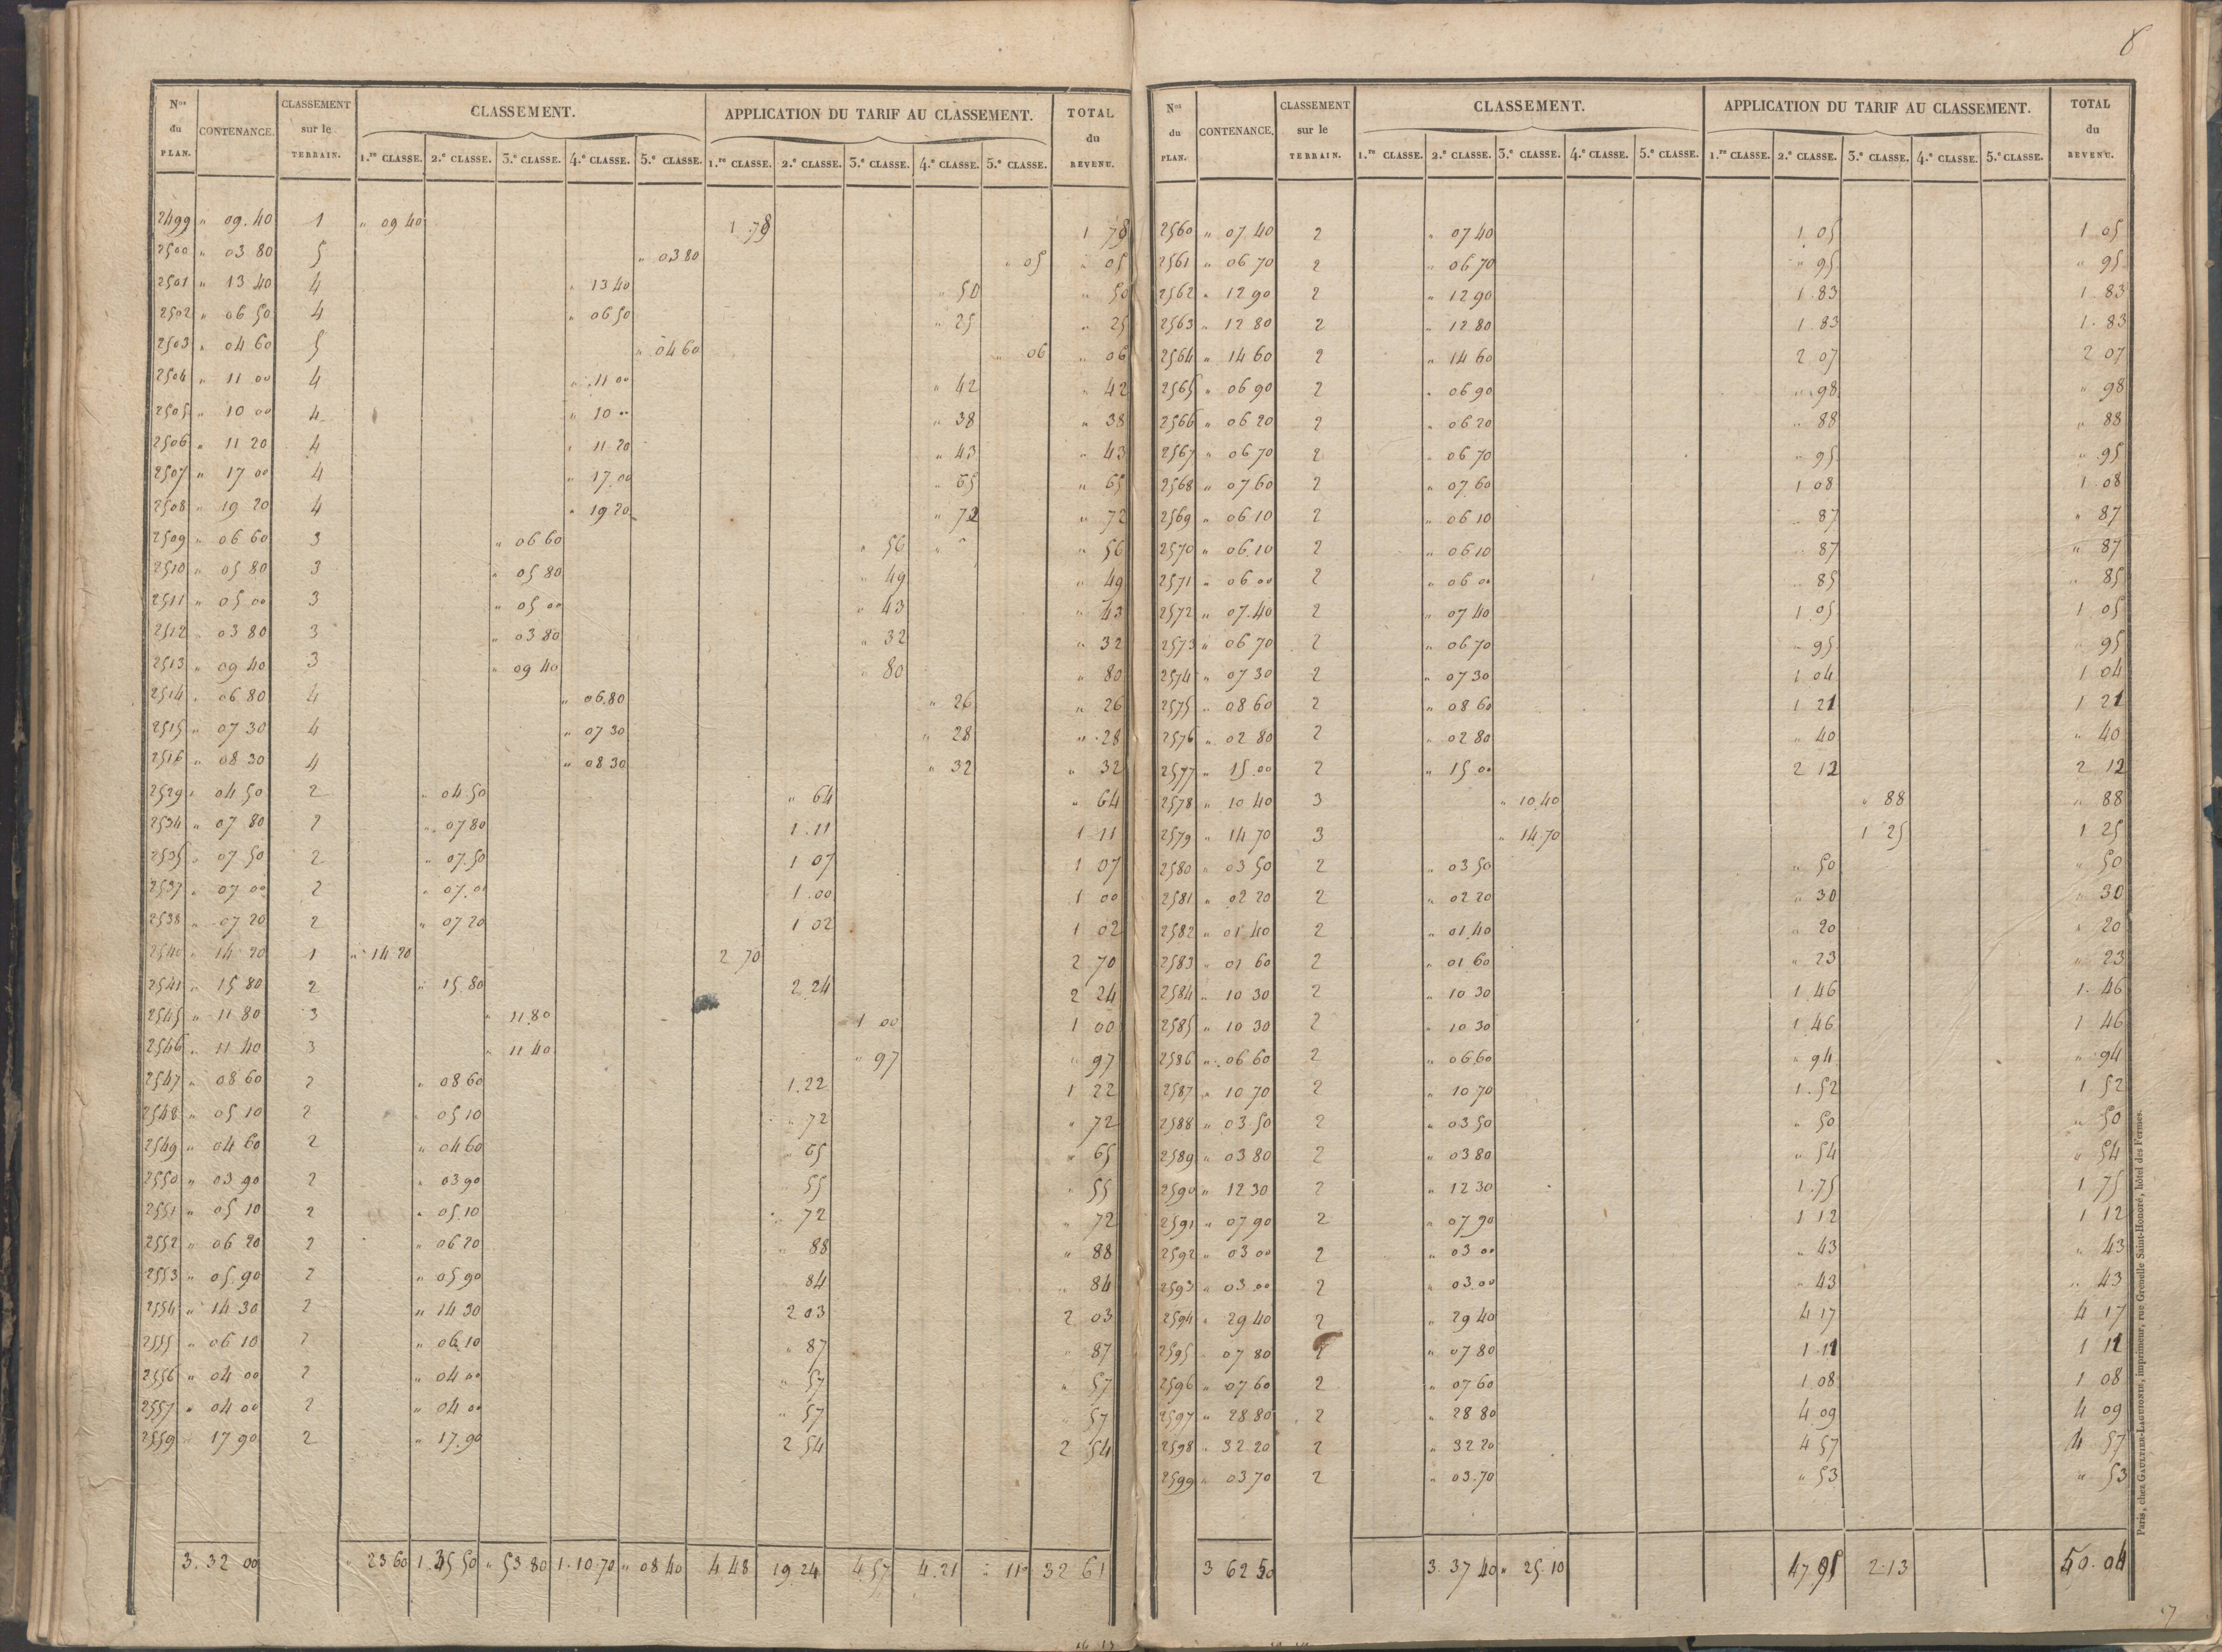 8
Nos du PLAN. CONTENANCE. CLASSEMENT sur le TERRAIN. CLASSEMENT. APPLICATION DU TARIF AU CLASSEMENT. TOTAL du REVENU.
1.re CLASSE. 2.e CLASSE. 3.e CLASSE. 4.e CLASSE. 5.e CLASSE. 1.re CLASSE. 2.e CLASSE. 3.e CLASSE. 4.e CLASSE. 5.e CLASSE.
2499 " 09.40 1 " 09 40 1.78 1 78
2500 " 03 80 5 " 03 80 " 05 " 05
2501 " 13 40 4 " 13 40 " 50 " 50
2502 " 06 50 4 " 06 50 " 25 " 25
2503 " 04 60 5 " 04 60 " 06 " 06
2504 " 11 00 4 " 11 00 " 42 " 42
2505 " 10 00 4 " 10 00 " 38 " 38
2506 " 11 20 4 " 11 20 " 43 " 43
2507 " 17 00 4 " 17.00 " 65 " 65
2508 " 19 20 4 " 19 20 " 72 " 72
2509 " 06 60 3 " 06 60 " 56 " 56
2510 " 05 80 3 " 05 80 " 49 " 49
2511 " 05 00 3 " 05 00 " 43 " 43
2512 " 03 80 3 " 03 80 " 32 " 32
2513 " 09 40 3 " 09 40 " 80 " 80
2514 " 06 80 4 " 06.80 " 26 " 26
2515 " 07 30 4 " 07 30 " 28 " 28
2516 " 08 30 4 " 08 30 " 32 " 32
2529 " 04 50 2 " 04 50 " 64 " 64
2534 " 07 80 2 " 07 80 1.11 1 11
2535 " 07 50 2 " 07.50 1 07 1 07
2537 " 07 00 2 " 07.00 1.00 1 00
2538 " 07 20 2 " 07 20 1 02 1 02
2540 " 14 20 1 " 14 20 2 70 2 70
2541 " 15 80 2 " 15.80 2.24 2 24
2545 " 11 80 3 " 11.80 1 00 1 00
2546 " 11 40 3 " 11 40 " 97 " 97
2547 " 08 60 2 " 08 60 1.22 1 22
2548 " 05 10 2 " 05 10 " 72 " 72
2549 " 04 60 2 " 04 60 " 65 " 65
2550 " 03 90 2 " 03 90 " 55 " 55
2551 " 05 10 2 " 05.10 " 72 " 72
2552 " 06 20 2 " 06 20 " 88 " 88
2553 " 05.90 2 " 05 90 " 84 " 84
2554 " 14 30 2 " 14 30 2 03 2 03
2555 " 06 10 2 " 06.10 " 87 " 87
2556 " 04 00 2 " 04 00 " 57 " 57
2557 " 04 00 2 " 04 00 " 57 " 57
2559 " 17 90 2 " 17.90 2 54 2 54
3.32 00 " 23 60 1.35 50 " 53 80 1.10.70 " 08 40 4 48 19.24 4.57 4.21 " 11 32 61
Nos du PLAN. CONTENANCE. CLASSEMENT sur le TERRAIN. CLASSEMENT. APPLICATION DU TARIF AU CLASSEMENT. TOTAL du REVENU.
1.re CLASSE. 2.e CLASSE. 3.e CLASSE. 4.e CLASSE. 5.e CLASSE. 1.re CLASSE. 2.e CLASSE. 3.e CLASSE. 4.e CLASSE. 5.e CLASSE.
2560 " 07 40 2 " 07 40 1 05 1 05
2561 " 06 70 2 " 06 70 " 95 " 95
2562 " 12 90 2 " 12 90 1.83 1.83
2563 " 12 80 2 " 12 80 1.83 1.83
2564 " 14 60 2 " 14 60 2 07 2 07
2565 " 06 90 2 " 06 90 " 98 " 98
2566 " 06 20 2 " 06 20 " 88 " 88
2567 " 06 70 2 " 06 70 " 95 " 95
2568 " 07 60 2 " 07.60 1 08 1 08
2569 " 06 10 2 " 06 10 " 87 " 87
2570 " 06.10 2 " 06 10 " 87 " 87
2571 " 06 00 2 " 06 00 " 85 " 85
2572 " 07.40 2 " 07 40 1.05 1 05
2573 " 06 70 2 " 06 70 " 95 " 95
2574 " 07 30 2 " 07 30 1 04 1 04
2575 " 08 60 2 " 08 60 1 21 1 21
2576 " 02 80 2 " 02 80 " 40 " 40
2577 " 15.00 2 " 15 00 2 12 2 12
2578 " 10 40 3 " 10.40 " 88 " 88
2579 " 14 70 3 " 14.70 1 25 1 25
2580 " 03 50 2 " 03 50 " 50 " 50
2581 " 02 20 2 " 02 20 " 30 " 30
2582 " 01 40 2 " 01.40 " 20 " 20
2583 " 01 60 2 " 01 60 " 23 " 23
2584 " 10 30 2 " 10 30 1 46 1.46
2585 " 10 30 2 " 10 30 1.46 1 46
2586 " 06 60 2 " 06 60 " 94 " 94
2587 " 10 70 2 " 10 70 1.52 1 52
2588 " 03 50 2 " 03 50 " 50 " 50
2589 " 03 80 2 " 03 80 " 54 " 54
2590 " 12 30 2 " 12 30 1.75 1 75
2591 " 07 90 2 " 07 90 1 12 1 12
2592 " 03 00 2 " 03 00 " 43 " 43
2593 " 03 00 2 " 03.00 " 43 " 43
2594 " 29 40 2 " 29 40 4 17 4 17
2595 " 07 80 2 " 07 80 1 11 1 11
2596 " 07 60 2 " 07 60 1 08 1 08
2597 " 28 80 2 " 28 80 4 09 4 09
2598 " 32 20 2 " 32 20 4 57 4 57
2599 " 03 70 2 " 03.70 " 53 " 53
3 62 50 3.37 40 " 25.10 47 91 2.13 50.04
Paris, chez GAULTIER-LAGUIONIE, imprimeur, rue Grenelle Saint-Honoré, hôtel des Fermes.